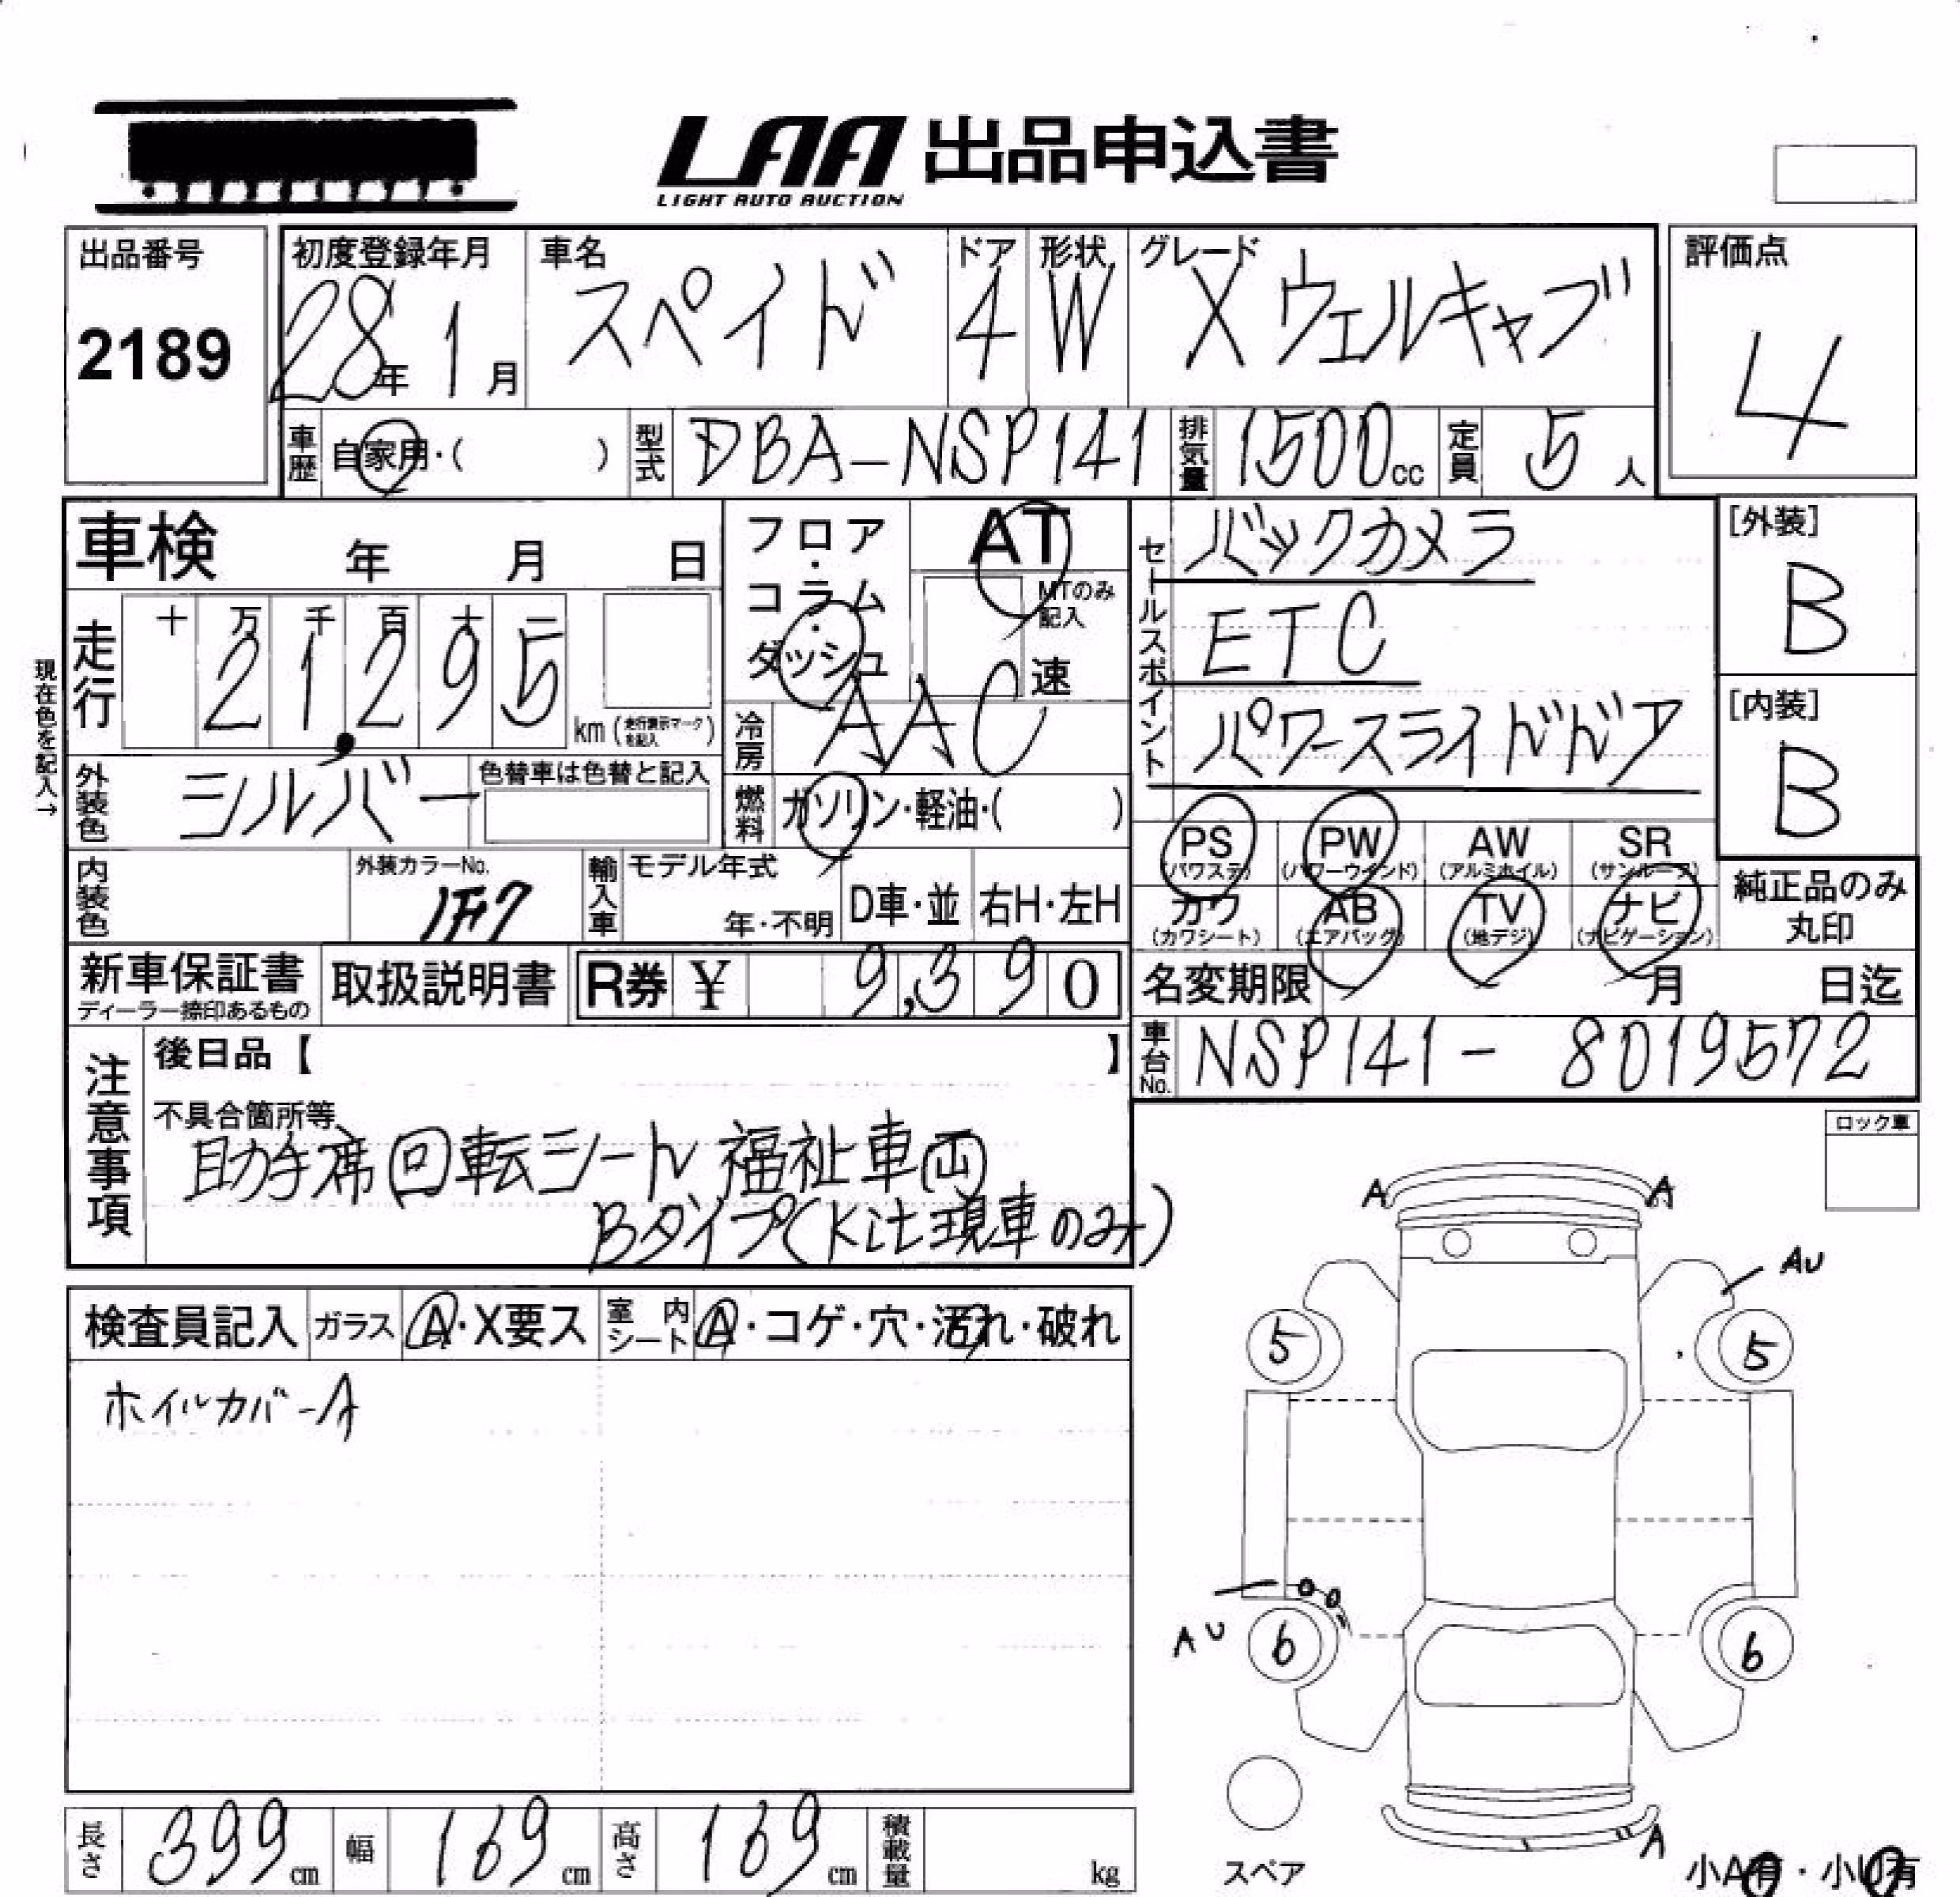 LAA 出品申込書
LIGHT AUTO AUCTION
出品番号
2189
初度登録年月
28年 1月
車名
スペイド
ドア
4
形状
W
グレード
X ウェルキャブ
評価点
4
車歴 自家用・( )
型式 DBA-NSP141
排気量 1500cc
定員 5人
車検 年 月 日
フロア・コラム・ダッシュ
AT
MTのみ記入
速
セールスポイント
バックカメラ
ETC
パワースライドドア
[外装]
B
[内装]
B
現在色を記入→
走行 十 万 千 百 十 一
21,295 km (走行表示マークを記入)
冷房 AAC
外装色 シルバー
色替車は色替と記入
燃料 ガソリン・軽油・( )
内装色
外装カラーNo.
1F7
輸入車 モデル年式
年・不明
D車・並
右H・左H
PS (パワステ)
PW (パワーウインド)
AW (アルミホイル)
SR (サンルーフ)
カワ (カワシート)
AB (エアバッグ)
TV (地デジ)
ナビ (ナビゲーション)
純正品のみ丸印
新車保証書
ディーラー捺印あるもの
取扱説明書
R券 ¥ 9,390
名変期限 月 日迄
車台No. NSP141-8019572
注意事項
後日品【 】
不具合箇所等
助手席回転シート 福祉車両
Bタイプ(Kit現車のみ)
ロック車
検査員記入
ガラス A・X要ス
室内シート A・コゲ・穴・汚れ・破れ
ホイルカバーA
A A
AU
5 5
AU
6 6
A
スペア
小A有・小U有
長さ 399cm
幅 169cm
高さ 169cm
積載量 kg